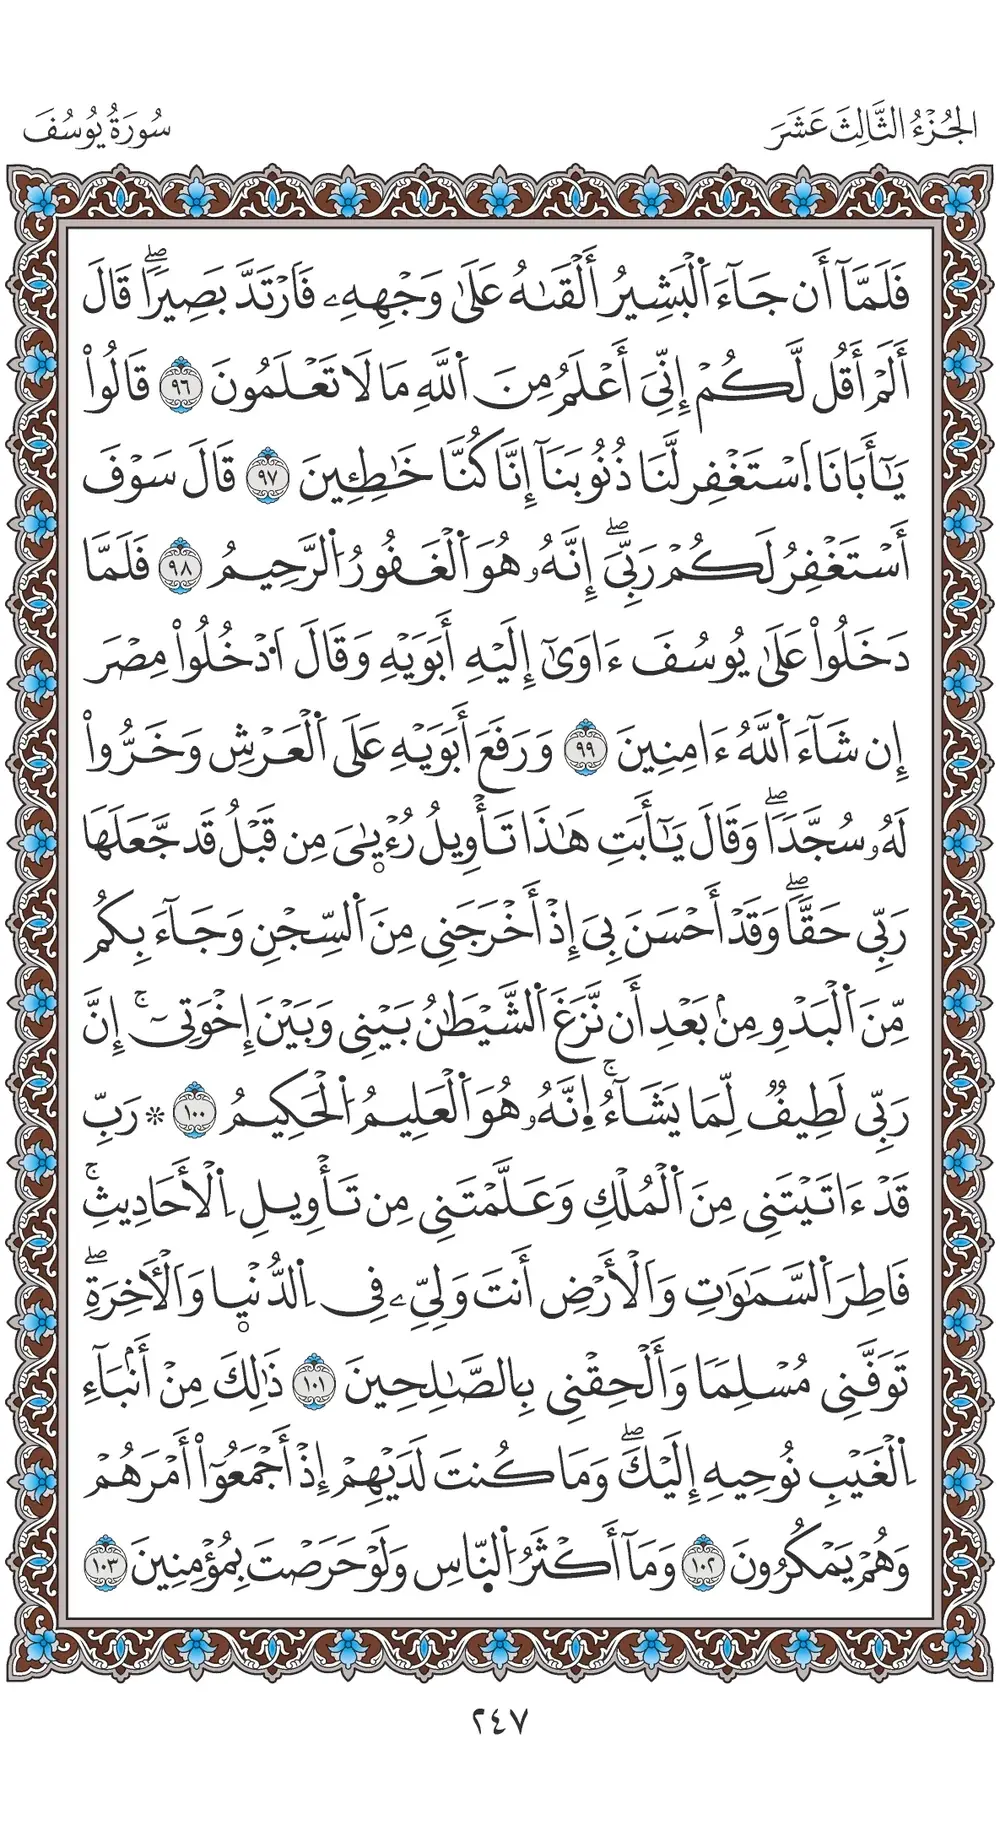 الجُزْءُ الثَّالِثَ عَشَرَ
سُورَةُ يُوسُفَ
فَلَمَّآ أَن جَآءَ اَ۬لْبَشِيرُ أَلْقَىٰهُ عَلَىٰ وَجْهِهِۦ فَارْتَدَّ بَصِيراٗۖ قَالَ
أَلَمْ أَقُل لَّكُمْ إِنِّيَ أَعْلَمُ مِنَ اَ۬للَّهِ مَا لَا تَعْلَمُونَ ٩٦ قَالُواْ
يَٰٓأَبَانَا اَ۪سْتَغْفِر لَّنَا ذُنُوبَنَآ إِنَّا كُنَّا خَٰطِـِٕينَ ٩٧ قَالَ سَوْفَ
أَسْتَغْفِرُ لَكُمْ رَبِّيَۖ إِنَّهُۥ هُوَ اَ۬لْغَفُورُ اُ۬لرَّحِيمُ ٩٨ فَلَمَّا
دَخَلُواْ عَلَىٰ يُوسُفَ ءَاوَىٰٓ إِلَيْهِ أَبَوَيْهِ وَقَالَ اَ۟دْخُلُواْ مِصْرَ
إِن شَآءَ اَ۬للَّهُ ءَامِنِينَ ٩٩ وَرَفَعَ أَبَوَيْهِ عَلَى اَ۬لْعَرْشِ وَخَرُّواْ
لَهُۥ سُجَّداٗۖ وَقَالَ يَٰٓأَبَتِ هَٰذَا تَأْوِيلُ رُءْيٰ۪يَ مِن قَبْلُ قَد جَّعَلَهَا
رَبِّي حَقّاٗۖ وَقَدْ أَحْسَنَ بِيَ إِذْ أَخْرَجَنِي مِنَ اَ۬لسِّجْنِ وَجَآءَ بِكُم
مِّنَ اَ۬لْبَدْوِ مِنۢ بَعْدِ أَن نَّزَغَ اَ۬لشَّيْطَٰنُ بَيْنِي وَبَيْنَ إِخْوَتِيٓۚ إِنَّ
رَبِّي لَطِيفٞ لِّمَا يَشَآءُۚ اِ۪نَّهُۥ هُوَ اَ۬لْعَلِيمُ اُ۬لْحَكِيمُ ١٠٠ ۞ رَبِّ
قَدْ ءَاتَيْتَنِي مِنَ اَ۬لْمُلْكِ وَعَلَّمْتَنِي مِن تَأْوِيلِ اِ۬لْأَحَادِيثِۚ
فَاطِرَ اَ۬لسَّمَٰوَٰتِ وَالْأَرْضِ أَنتَ وَلِيِّۦ فِي اِ۬لدُّنْي۪ا وَالْأٓخِرَةِۖ
تَوَفَّنِي مُسْلِماٗ وَأَلْحِقْنِي بِالصَّٰلِحِينَ ١٠١ ذَٰلِكَ مِنْ أَنۢبَآءِ
اِ۬لْغَيْبِ نُوحِيهِ إِلَيْكَۖ وَمَا كُنتَ لَدَيْهِمْ إِذْ أَجْمَعُوٓاْ أَمْرَهُمْ
وَهُمْ يَمْكُرُونَ ١٠٢ وَمَآ أَكْثَرُ اُ۬لنَّاسِ وَلَوْ حَرَصْتَ بِمُؤْمِنِينَ ١٠٣
٢٤٧